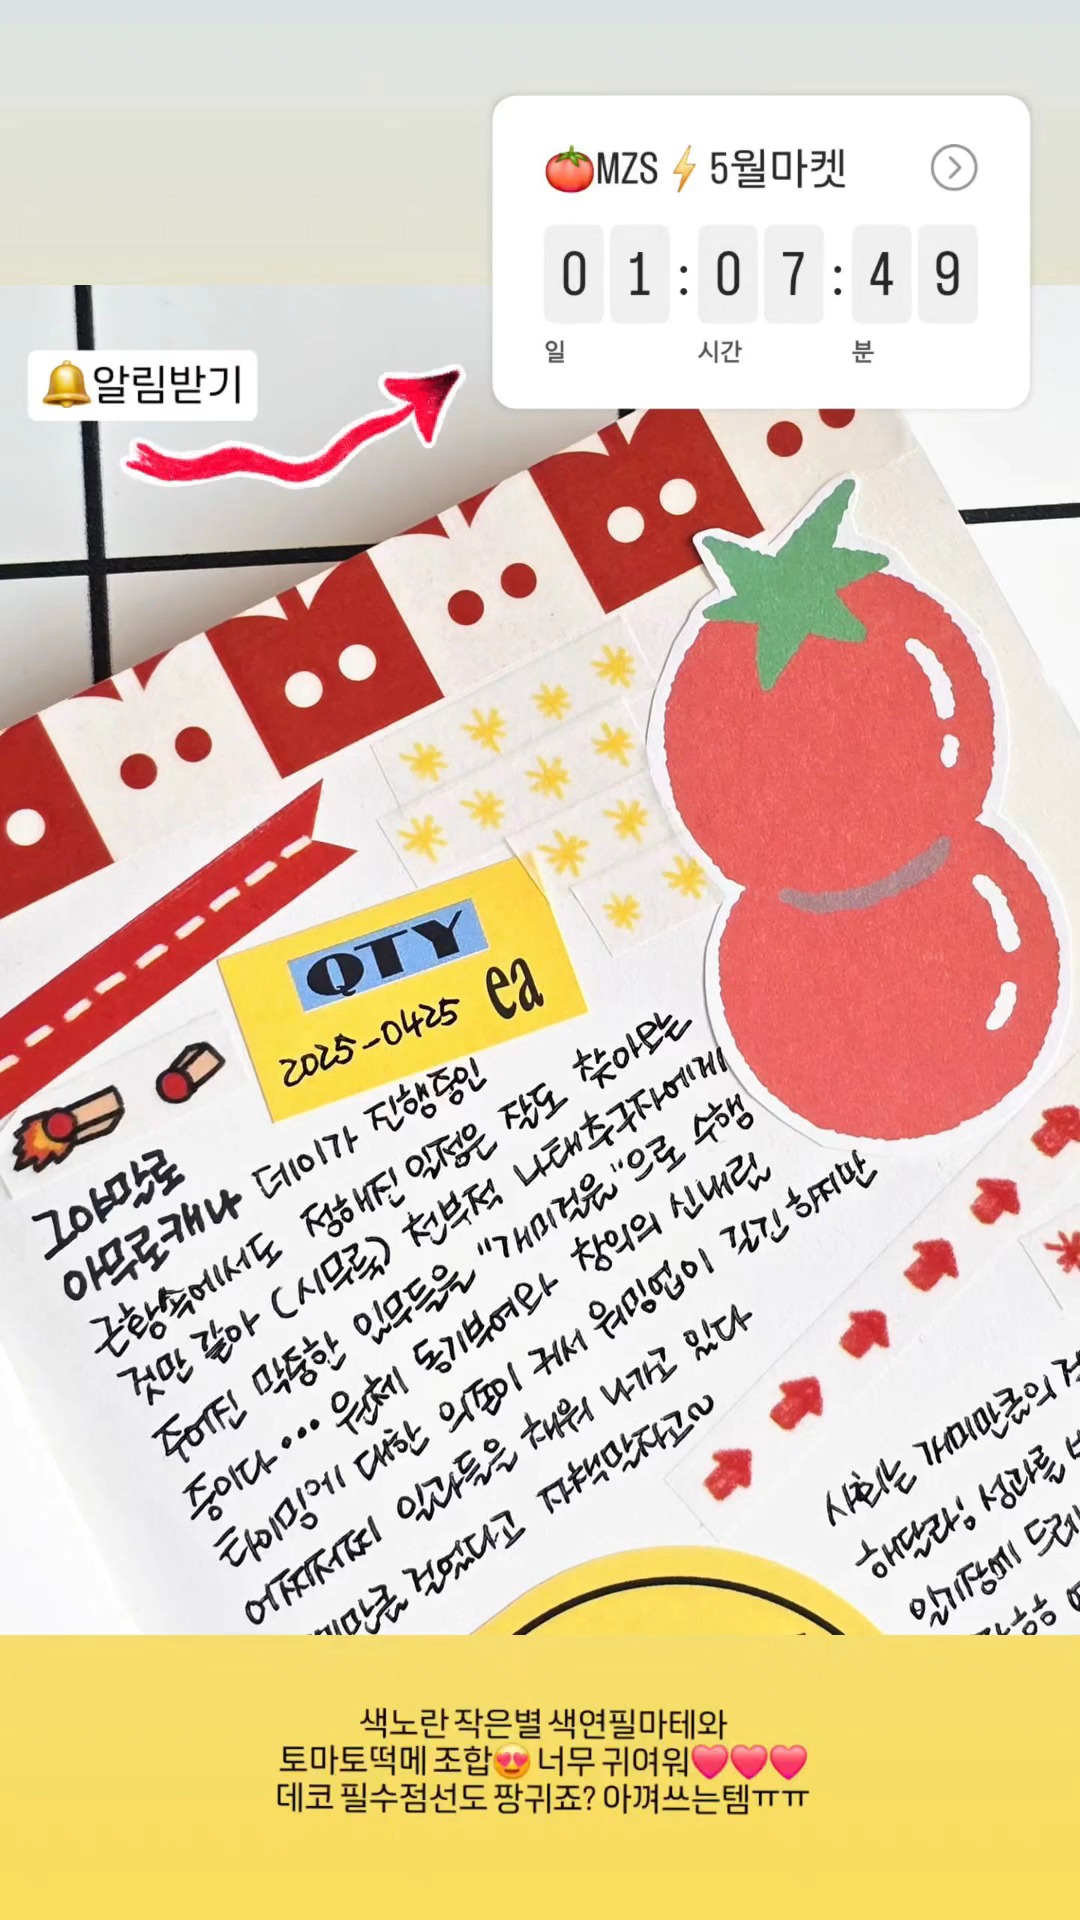 🍅MZS⚡5월마켓
01:07:49
일 시간 분
🔔알림받기
QTY
ea
2025-0425
그야말로
아무로캐나 데이가 진행중인
근황속에서도 정해진 일정은 잘도 찾아오는
것만 같아 (시무룩) 천부적 나태추구자에게
주어진 막중한 임무들을 "개미걸음"으로 수행
중이다... 원체 동기부여와 창의의 신내림
타이밍에 대한 의존이 커서 워밍업이 길긴 하지만
어찌저찌 일과들을 채워 나가고 있다
걸었다고 자책말자고~
사회는 개미만큼의
해달라; 성과를
일기장에
색노란 작은별 색연필마테와
토마토떡메 조합😍 너무 귀여워💗💗💗
데코 필수점선도 짱귀죠? 아껴쓰는템ㅠㅠ